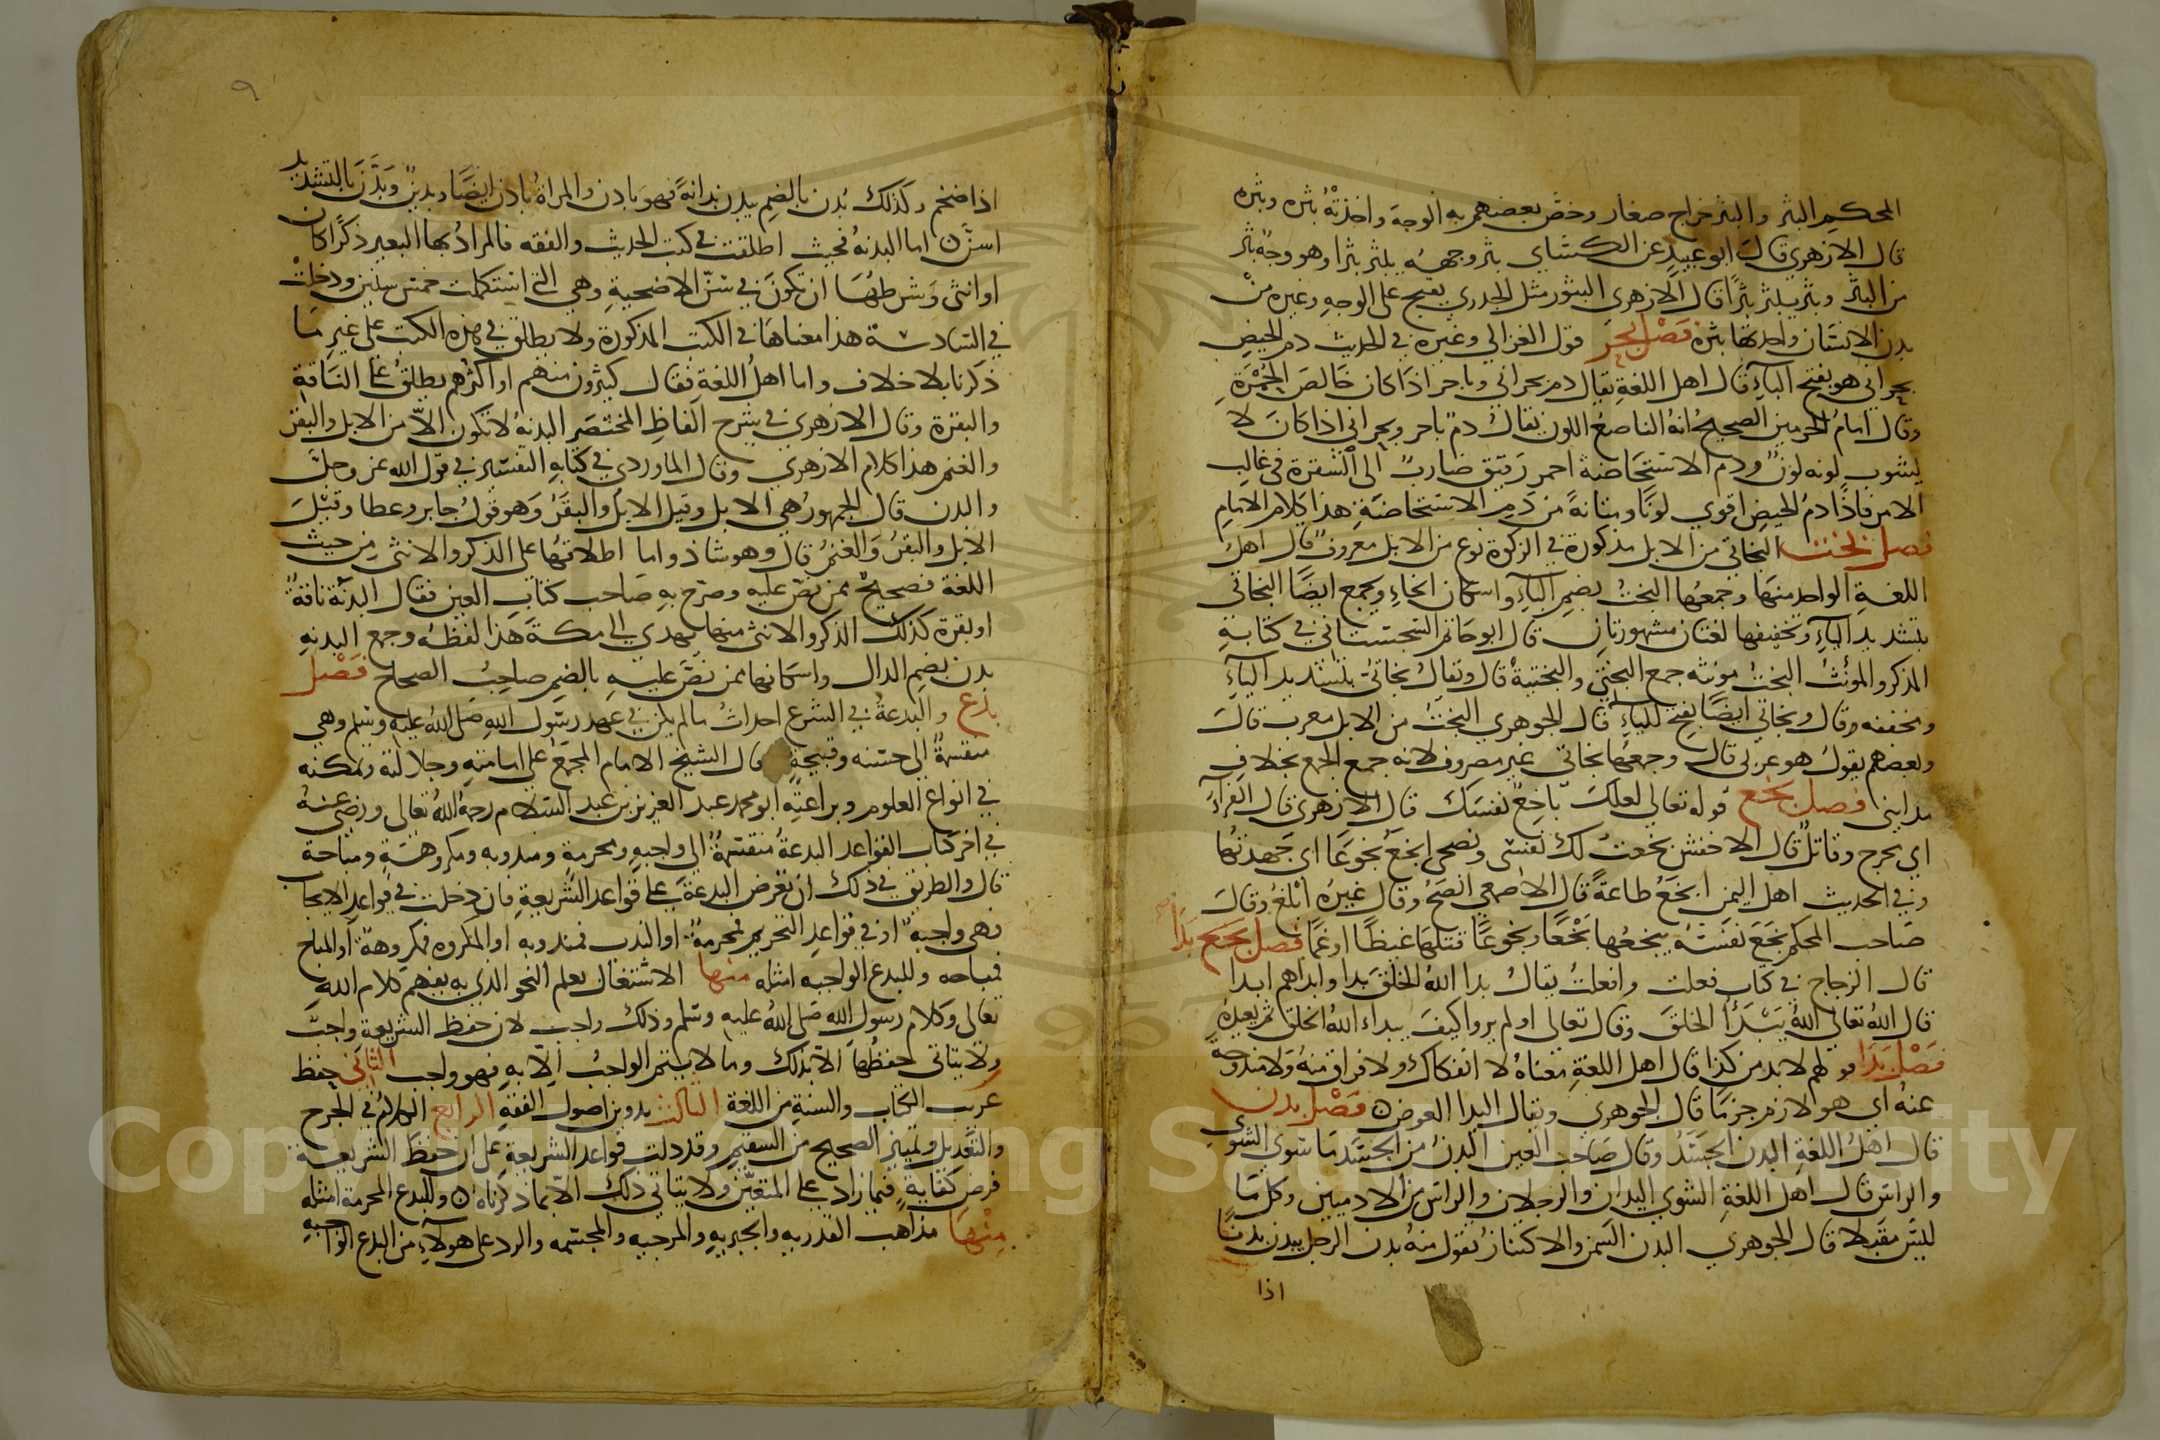 المحكم البثر والبثر خراج صغار وخص بعضهم به الوجه واحدته بثره وبثره
قال الازهري قال ابو عبيد عن الكسائي بثر وجهه يبثر بثرا وهو وجه بثر
من البثر وبثر يبثر بثرا قال الازهري البثور مثل الجدري يقبح على الوجه وغيره من
بدن الانسان واحدتها بثره فصل بحر قول الغزالي وغيره في الحديث دم الحيض
بحراني هو بفتح الباء قال اهل اللغة يقال دم بحراني وباحر اذا كان خالص الحمرة
وقال امام الحرمين الصحيح انه الناصع اللون يقال دم باحر وبحراني اذا كان لا
يشوب لونه لون ودم الاستحاضة احمر رقيق ضارب الى الشقرة في غالب
الامر فاذا دم الحيض اقوي لونا ومتانة من دم الاستحاضة هذا كلام الامام
فصل بخت البخاتي من الابل مذكورة في الزكوة نوع من الابل معروف قال اهل
اللغة الواحد منها وجمعها البخت بضم الباء واسكان الخاء ويجمع ايضا البخاتي
بتشديد الياء وتخفيفها لغتان مشهورتان قال ابو حاتم السجستاني في كتابه
المذكر والمؤنث البخت مونثه جمع البختي والبختية قال ويقال بخاتي بتشديد الياء
ومخففه وقال وبخاتي ايضا بفتح للياء قال الجوهري البخت من الابل معرب قال
وبعضهم يقول هو عربي قال وجمعها بخاتي غير مصروف لانه جمع الجمع بخلاف
مدايني فصل بخع قوله تعالى لعلك باخع نفسك قال الازهري قال الفراء
اي مخرج وقاتل قال الاخفش بخعت لك نفسي ونصحي ابخع بخوعا اي جهدتها
وفي الحديث اهل اليمن ابخع طاعة قال الاصمعي انصح وقال غيره ابلغ وقال
صاحب المحكم بخع نفسه يبخعها بخعا وبخوعا قتلها غيظا او غما فصل بدا
قال الزجاج في كتاب فعلت وافعلت يقال بدا الله الخلق بدا وابداهم ابدا
قال الله تعالى الله يبدأ الخلق وقال تعالى اولم يروا كيف يبداء الله الخلق ثم يعيده
فصل بدا قولهم لا بد من كذا قال اهل اللغة معناه لا انفكاك ولا فراق منه ولا مندوحة
عنه اي هو لازم جزما قال الجوهري ويقال البدا العوض فصل بدن
قال اهل اللغة البدن الجسد وقال صاحب العين البدن من الجسد ما سوي الشوي
والراس قال اهل اللغة الشوي اليدان والرجلان والراس من الادميين وكل ما
ليس مقتلا قال الجوهري البدن السمن والاكتناز تقول منه بدن الرجل يبدن بدنا
اذا
٩
اذا ضخم وكذلك بدن بالضم يبدن بدانة فهو بادن والمراة بادن ايضا وبدين وبدن بالتشديد
اسن اما البدنة فحيث اطلقت في كتب الحديث والفقه فالمراد بها البعير ذكرا كان
او انثى وشرطها ان تكون في سن الاضحية وهي التي استكملت خمس سنين ودخلت
في السادسة هذا معناها في الكتب المذكورة ولا يطلق في هذه الكتب على غير ما
ذكرنا بلا خلاف واما اهل اللغة فقال كثيرون منهم او اكثرهم يطلق على الناقة
والبقرة وقال الازهري في شرح الفاظ المختصر البدنه لا تكون الا من الابل والبقر
والغنم هذا كلام الازهري وقال الماوردي في كتابه التفسير في قول الله عز وجل
والبدن قال الجمهور هي الابل وقيل الابل والبقر وهو قول جابر وعطا وقيل
الابل والبقر والغنم قال وهو شاذ واما اطلاقها على الذكر والانثى من حيث
اللغة فصحيح ممن نص عليه وصرح به صاحب كتاب العين فقال البدنة ناقة
او بقرة كذلك الذكر والانثى منها يهدي الى مكة هذا لفظه وجمع البدنه
بدن بضم الدال واسكانها ممن نص عليه بالضم صاحب الصحاح فصل
بدع والبدعة في الشرع احداث ما لم يكن في عهد رسول الله صلى الله عليه وسلم وهي
منقسمة الى حسنه وقبيحة قال الشيخ الامام المجمع على امامته وجلالته وتمكنه
في انواع العلوم وبراعته ابو محمد عبد العزيز بن عبد السلام رحمه الله تعالى ورضي عنه
في اخر كتاب القواعد البدعة منقسمة الى واجبه ومحرمة ومندوبه ومكروهة ومباحة
قال والطريق في ذلك ان تعرض البدعة على قواعد الشريعة فان دخلت في قواعد الايجاب
فهي واجبة او في قواعد التحريم فمحرمة او الندب فمندوبه او المكروه فمكروهة او المباح
فمباحه وللبدع الواجبه امثله منها الاشتغال بعلم النحو الذي به يفهم كلام الله
تعالى وكلام رسول الله صلى الله عليه وسلم وذلك واجب لان حفظ الشريعة واجب
ولا يتاتى حفظها الا بذلك وما لا يتم الواجب الا به فهو واجب الثاني حفظ
غريب الكتاب والسنة من اللغة الثالث تدوين اصول الفقه الرابع الكلام في الجرح
والتعديل وتمييز الصحيح من السقيم وقد دلت قواعد الشريعة على ان حفظ الشريعة
فرض كفاية فيما زاد على المتعين ولا يتاتي ذلك الا بما ذكرناه وللبدع المحرمة امثله
منها مذاهب القدريه والجبريه والمرجيه والمجسمه والرد على هولاء من البدع الواجبه